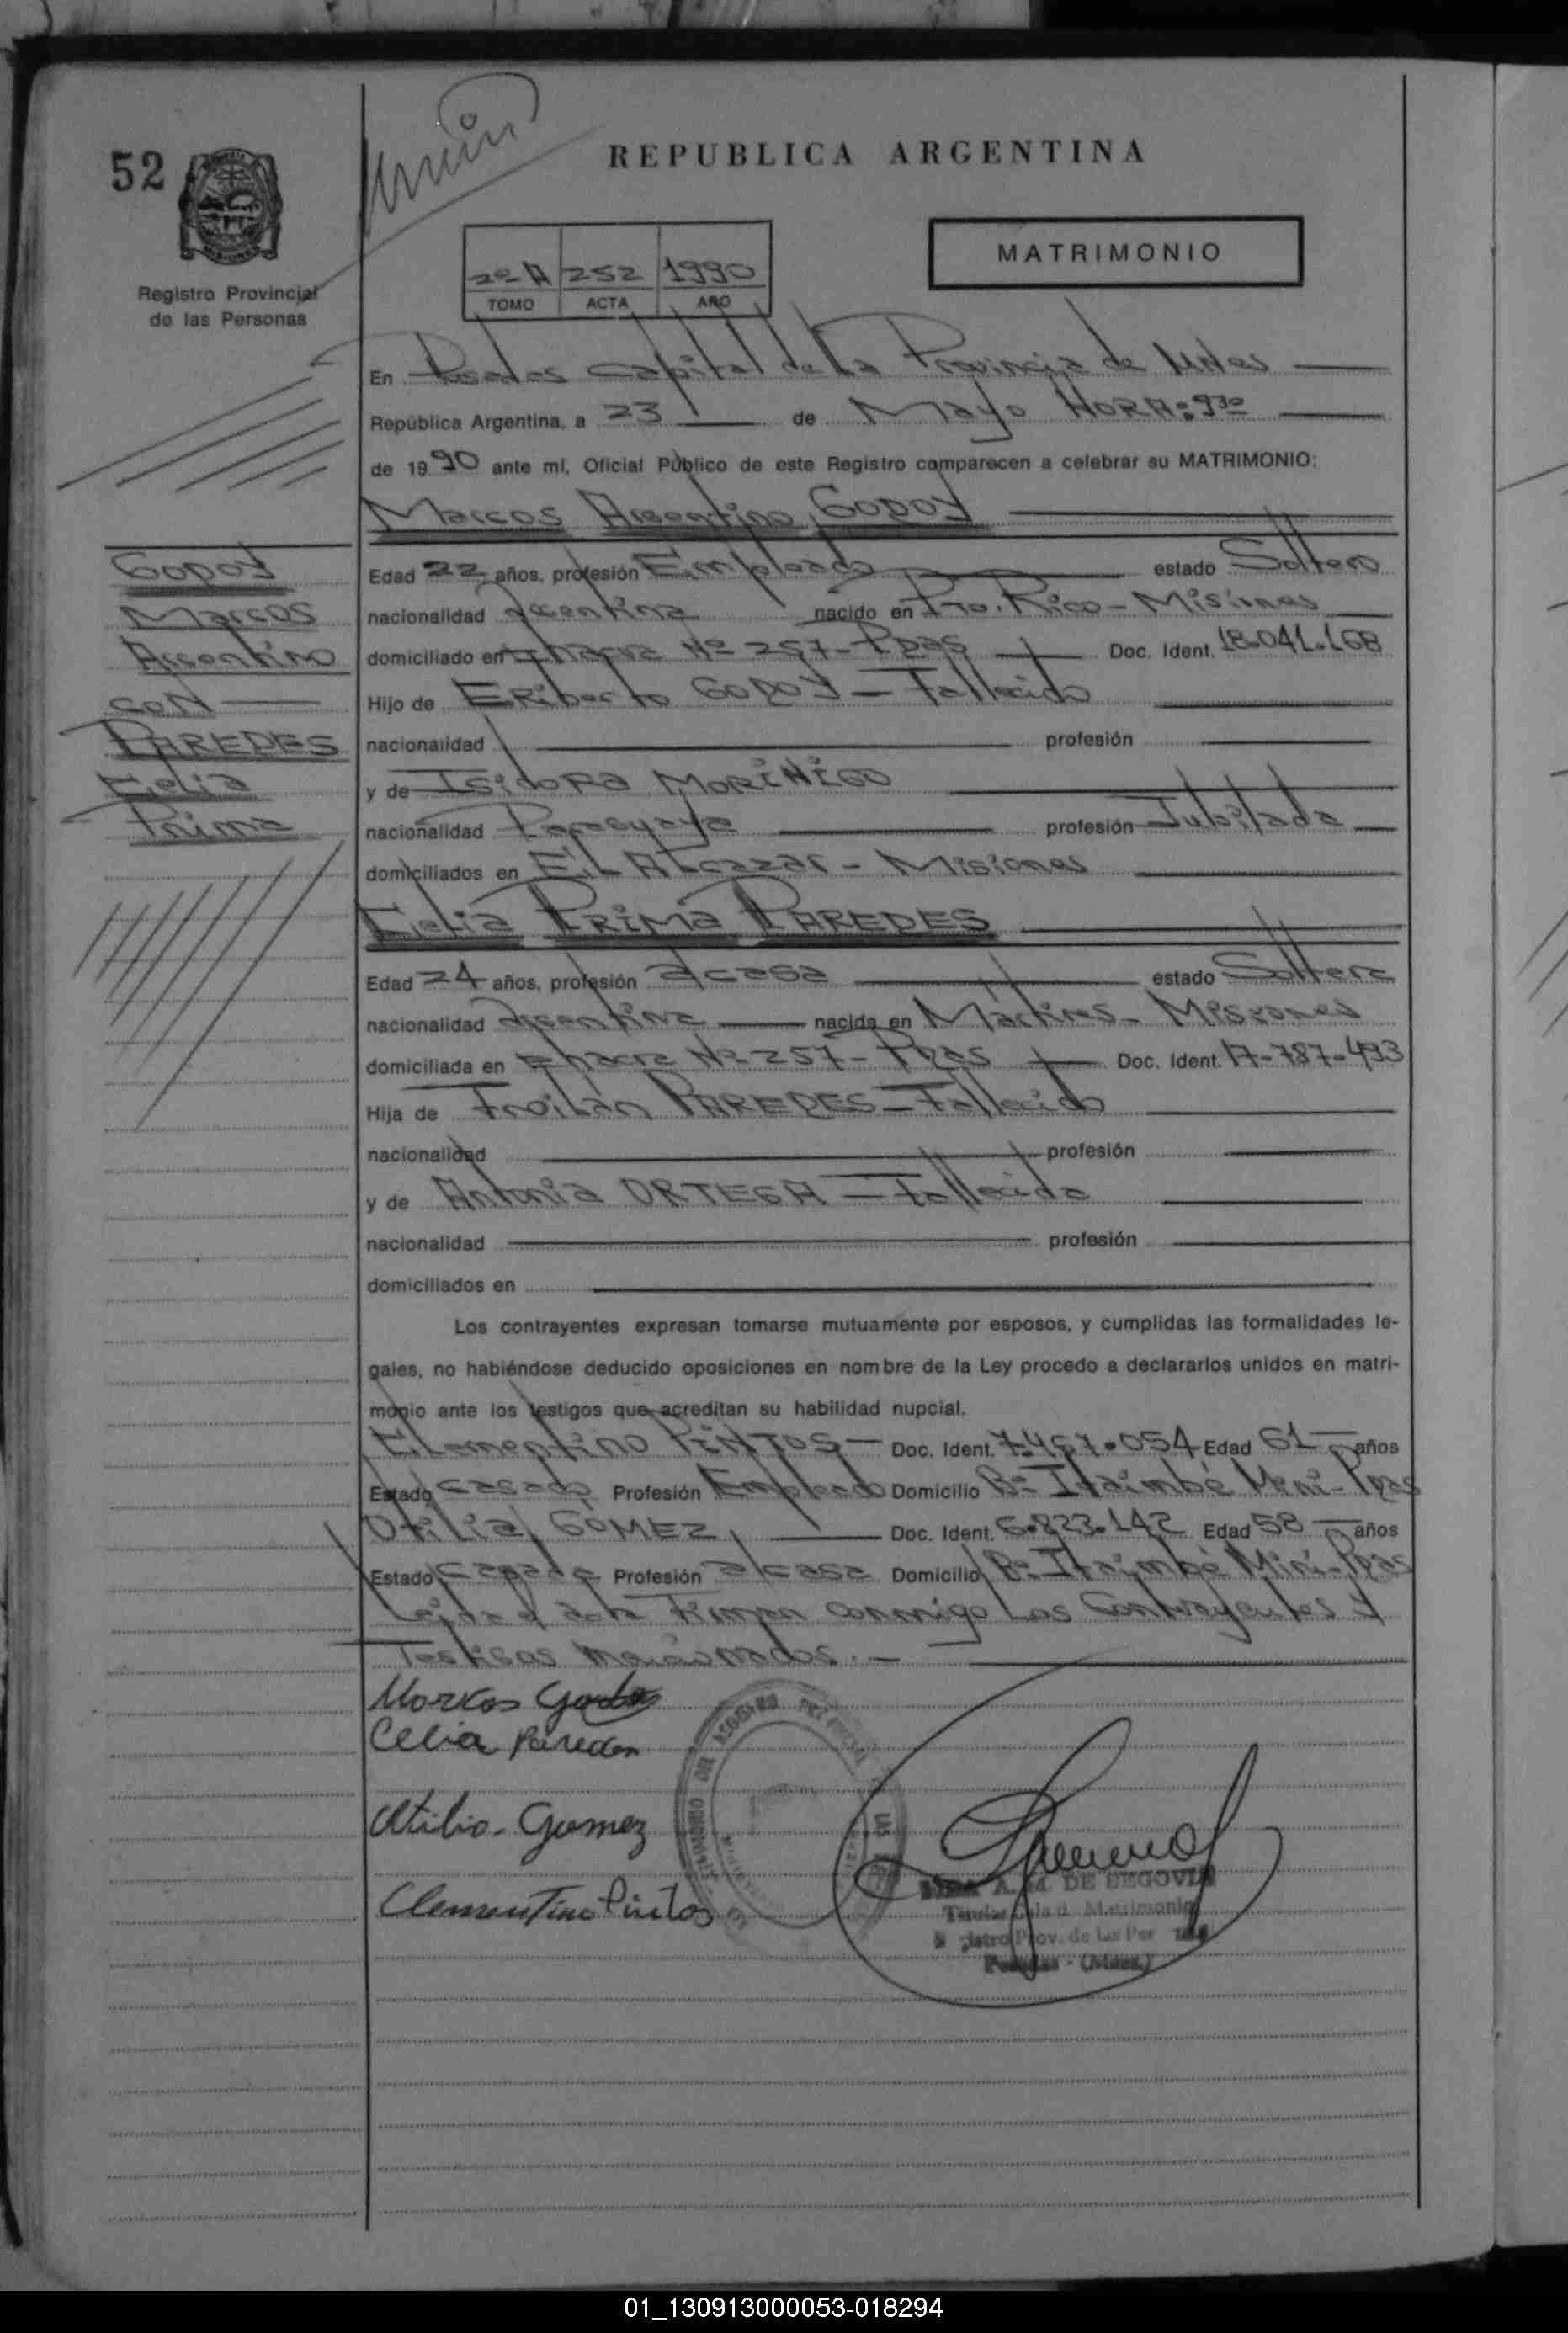 52
Registro Provincial
de las Personas
REPUBLICA ARGENTINA
2º A 252 1990
TOMO ACTA AÑO
MATRIMONIO
En Posadas Capital de la Provincia de Mnes
República Argentina, a 23 de Mayo HORA: 9³⁰
de 1990 ante mí, Oficial Público de este Registro comparecen a celebrar su MATRIMONIO:
Marcos Argentino GODOY
GODOY
Marcos
Argentino
CON
PAREDES
Celia
Prima
Edad 22 años, profesión Empleado estado Soltero
nacionalidad Argentina nacido en Pto. Rico - Misiones
domiciliado en Chacra Nº 257 - Pdas Doc. Ident. 18.041.168
Hijo de ERiberto GODOY - Fallecido
nacionalidad profesión
y de ISidoRa MORINIGO
nacionalidad Paraguaya profesión Jubilada
domiciliados en El Alcazar - Misiones
Celia PRIMa PAREDES
Edad 24 años, profesión d/casa estado Soltera
nacionalidad Argentina nacida en Mártires - Misiones
domiciliada en Chacra Nº 257 - Pdas Doc. Ident. 17.787.493
Hija de Froilán PAREDES - Fallecido
nacionalidad profesión
y de Antonia ORTEGA - Fallecida
nacionalidad profesión
domiciliados en
Los contrayentes expresan tomarse mutuamente por esposos, y cumplidas las formalidades le-
gales, no habiéndose deducido oposiciones en nombre de la Ley procedo a declararlos unidos en matri-
monio ante los testigos que acreditan su habilidad nupcial.
Clementino PINTOS - Doc. Ident. 7.457.054 Edad 61 años
Estado Casado Profesión Empleado Domicilio Bº Itaimbé Mini - Pdas
Otilia GOMEZ Doc. Ident. 6.823.142 Edad 58 años
Estado Casada Profesión d/casa Domicilio Bº Itaimbé Mini - Pdas
Leída el acta Firman conmigo Los Contrayentes y
Testigos mencionados. -
Markos Godoy
Celia Paredes
Otilia - Gomez
Clementino Pintos
A. M. DE SEGOVIA
Titular Sala d. Matrimonio
Prov. de las Per
Posadas - (Mnes.)
01_130913000053-018294